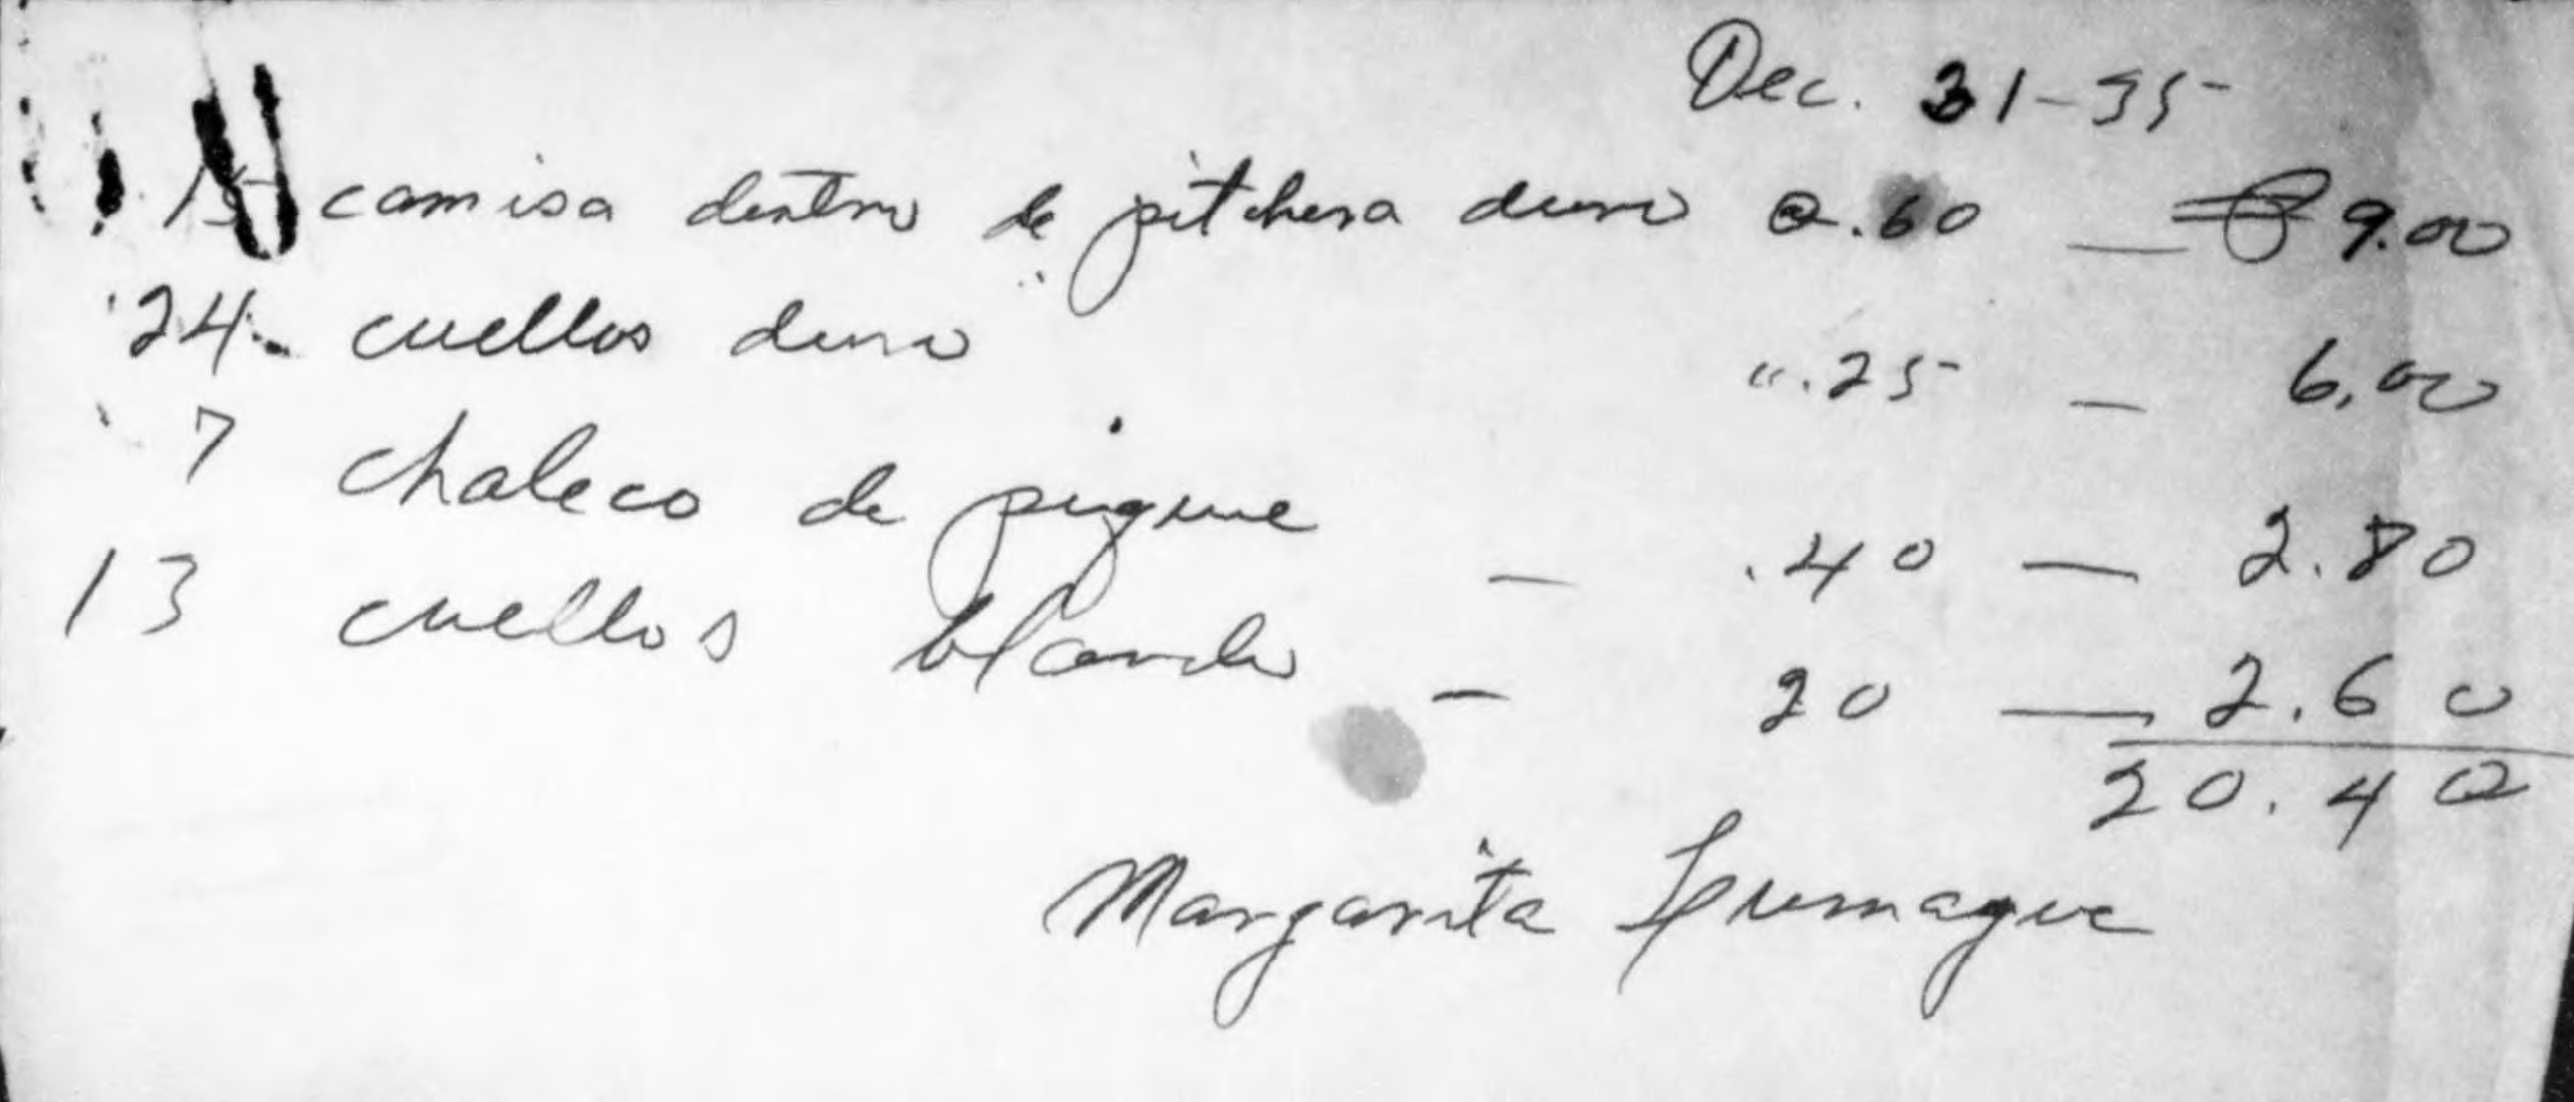 Dec. 31-35
15 camisa dentro de pitchera duro @ .60 — ₱ 9.00
24 cuellos duro " .25 — 6.00
7 chaleco de pigue — .40 — 2.80
13 cuellos blando — 20 — 2.60
20.40
Margarita